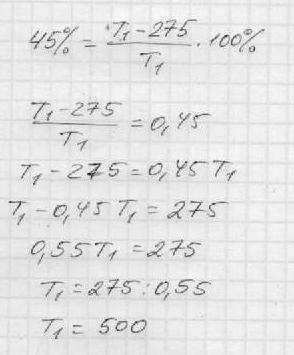 45% = (T₁ - 275) / T₁ · 100%
(T₁ - 275) / T₁ = 0,45
T₁ - 275 = 0,45 T₁
T₁ - 0,45 T₁ = 275
0,55 T₁ = 275
T₁ = 275 : 0,55
T₁ = 500